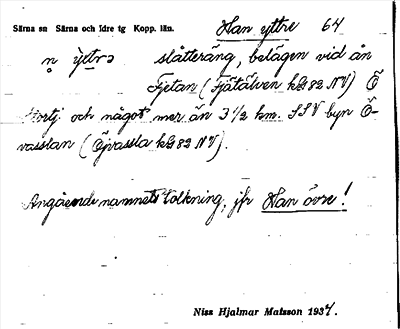 Särna sn Särna och Idre tg Kopp. län. Han yttre 64
slatteräng, belägen vid ån
Fjetan (Fjätälven kbl 82 NV) Ö
och något mer än 3 1/2 km. SSV byn Ö-
vasslan (Öjvassla kbl 82 NV).
Angående namnets tolkning, jfr Han övre!
Niss Hjalmar Matsson 1937.